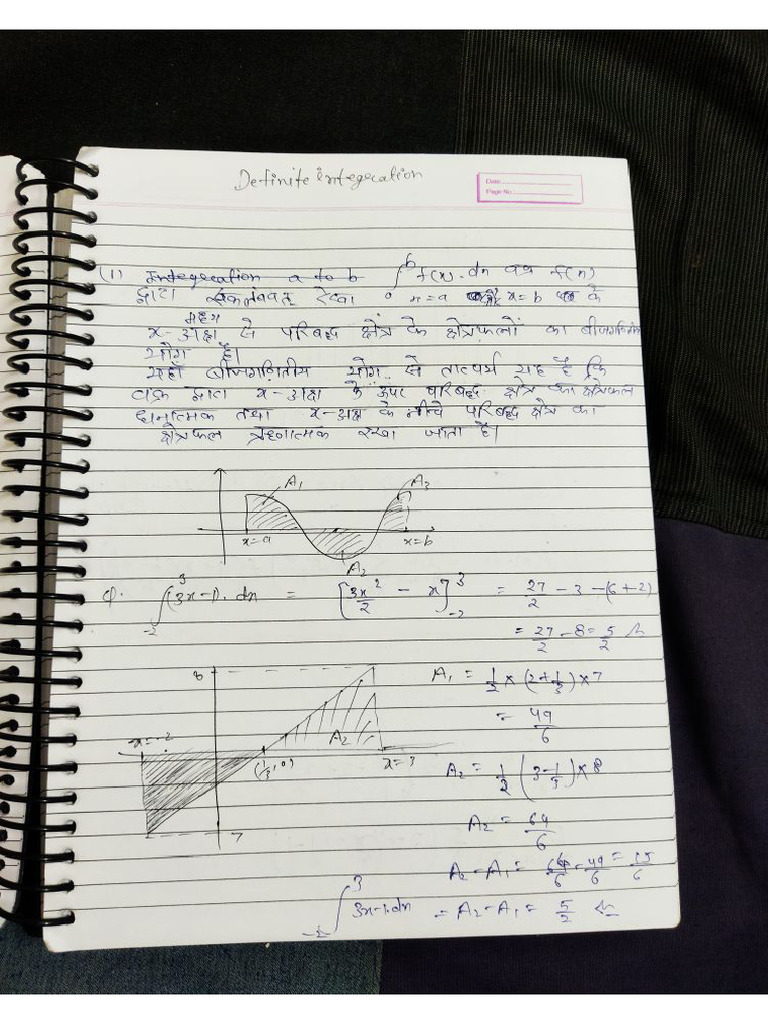 Definite integecation
Date
Page No.
(1) Integecation a to b ∫ₐᵇ f(x).dx वक्र f(x)
द्वारा रेखा x=a x=b के
x-अक्ष से परिबद्ध क्षेत्र के क्षेत्रफलों का बीजगणितीय
योग है।
यहाँ बीजगणितीय योग से तात्पर्य यह है कि
वक्र द्वारा x-अक्ष के ऊपर परिबद्ध क्षेत्र का क्षेत्रफल
धनात्मक तथा x-अक्ष के नीचे परिबद्ध क्षेत्र का
क्षेत्रफल ऋणात्मक रखा जाता है।
A₁ A₃
x=a x=b
A₂
Q. ∫₋₂³ (3x-1).dx = [3x²/2 - x]₋₂³ = 27/2 - 3 - (6+2)
= 27/2 - 8 = 5/2
8 A₁ = 1/2 × (2+1/3) × 7
= 49/6
x=-2 A₂
(1/3, 0) x=3 A₂ = 1/2 (3-1/3) × 8
7 A₂ = 64/6
A₂ - A₁ = 64/6 - 49/6 = 15/6
∫₋₂³ 3x-1.dx = A₂ - A₁ = 5/2